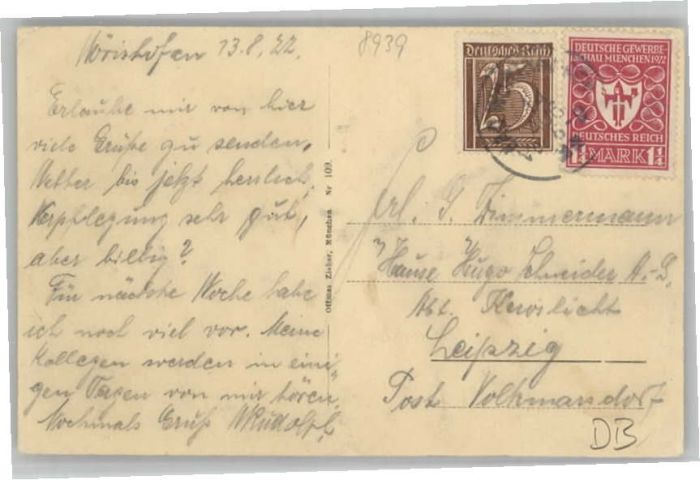 Wörishofen 13.8.22.
8939
Erlaube mir von hier
viele Grüße zu senden.
Wetter bis jetzt herrlich.
Verpflegung sehr gut,
aber billig?
Für nächste Woche habe
ich noch viel vor. Meine
Kollegen werden in eini-
gen Tagen von mir hören.
Nochmals Gruß WRudolph
Ottmar Zieher, München. Nr 109.
Deutsches Reich
25
DEUTSCHE GEWERBE-
SCHAU MUENCHEN 1922
DEUTSCHES REICH
1¼ MARK 1¼
Frl. J. Zimmermann
i/Hause Hugo Schneider A.-G.
Abt. Kerzlicht
Leipzig
Post Volkmarsdorf
DB